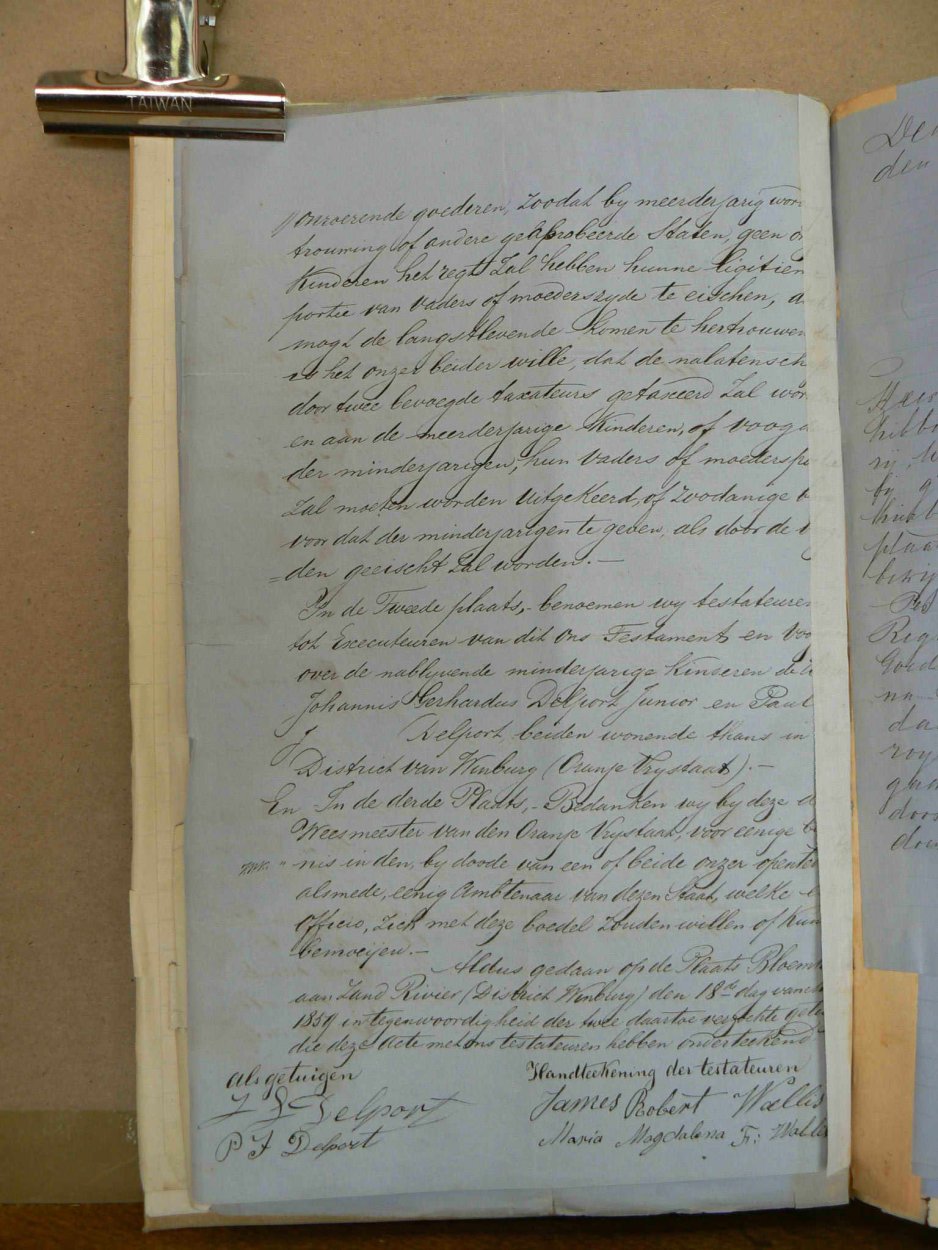 TAIWAN
onroerende goederen, zoodat by meerderjarig wor
trouwing of andere geaprobeerde Staten, geen
Kinderen het regt Zal hebben hunne ligitiem
portie van vaders of moederszyde te eischen,
mogt de langstlevende komen te hertrouwen
is het onzer beider wille, dat de nalatensch
door twee bevoegde taxateurs getaxeerd Zal wor
en aan de meerderjarige Kinderen, of voogd
der minderjarigen, hun vaders of moeders
Zal moeten worden uitgekeerd, of Zoodanige
voor dat der minderjarigen te geven, als door de
=den geeischt Zal worden.—
In de Tweede plaats,- benoemen wy testateuren
tot Executeuren van dit Ons Testament en Voo
over de nablyvende minderjarige kinseren de
Johannis Gerhardus Delport Junior en Paul
J Delport beiden wonende thans in
District van Winburg (Oranje Vrystaat).—
En In de derde Plaats,- Bedanken wy by deze
Weesmeester van den Oranje Vrystaat, voor eenige be
nis in den, by doode van een of beide onzer
alsmede, eenig Ambtenaar van dezen Staat, welke
Officio, Zich met deze boedel Zouden willen of Kun
bemoeijen.—
Aldus gedaan op de Plaats Bloem
aan Zand Rivier (District Winburg) den 18de dag van
1859 in tegenwoordigheid der twee daartoe verzochte getu
die deze Acte met ons testateuren hebben onderteekend
als getuigen
Delport
P J Delport
Handteekening der testateuren
James Robert Wallis
Maria Magdalena F: Wallis
De
den